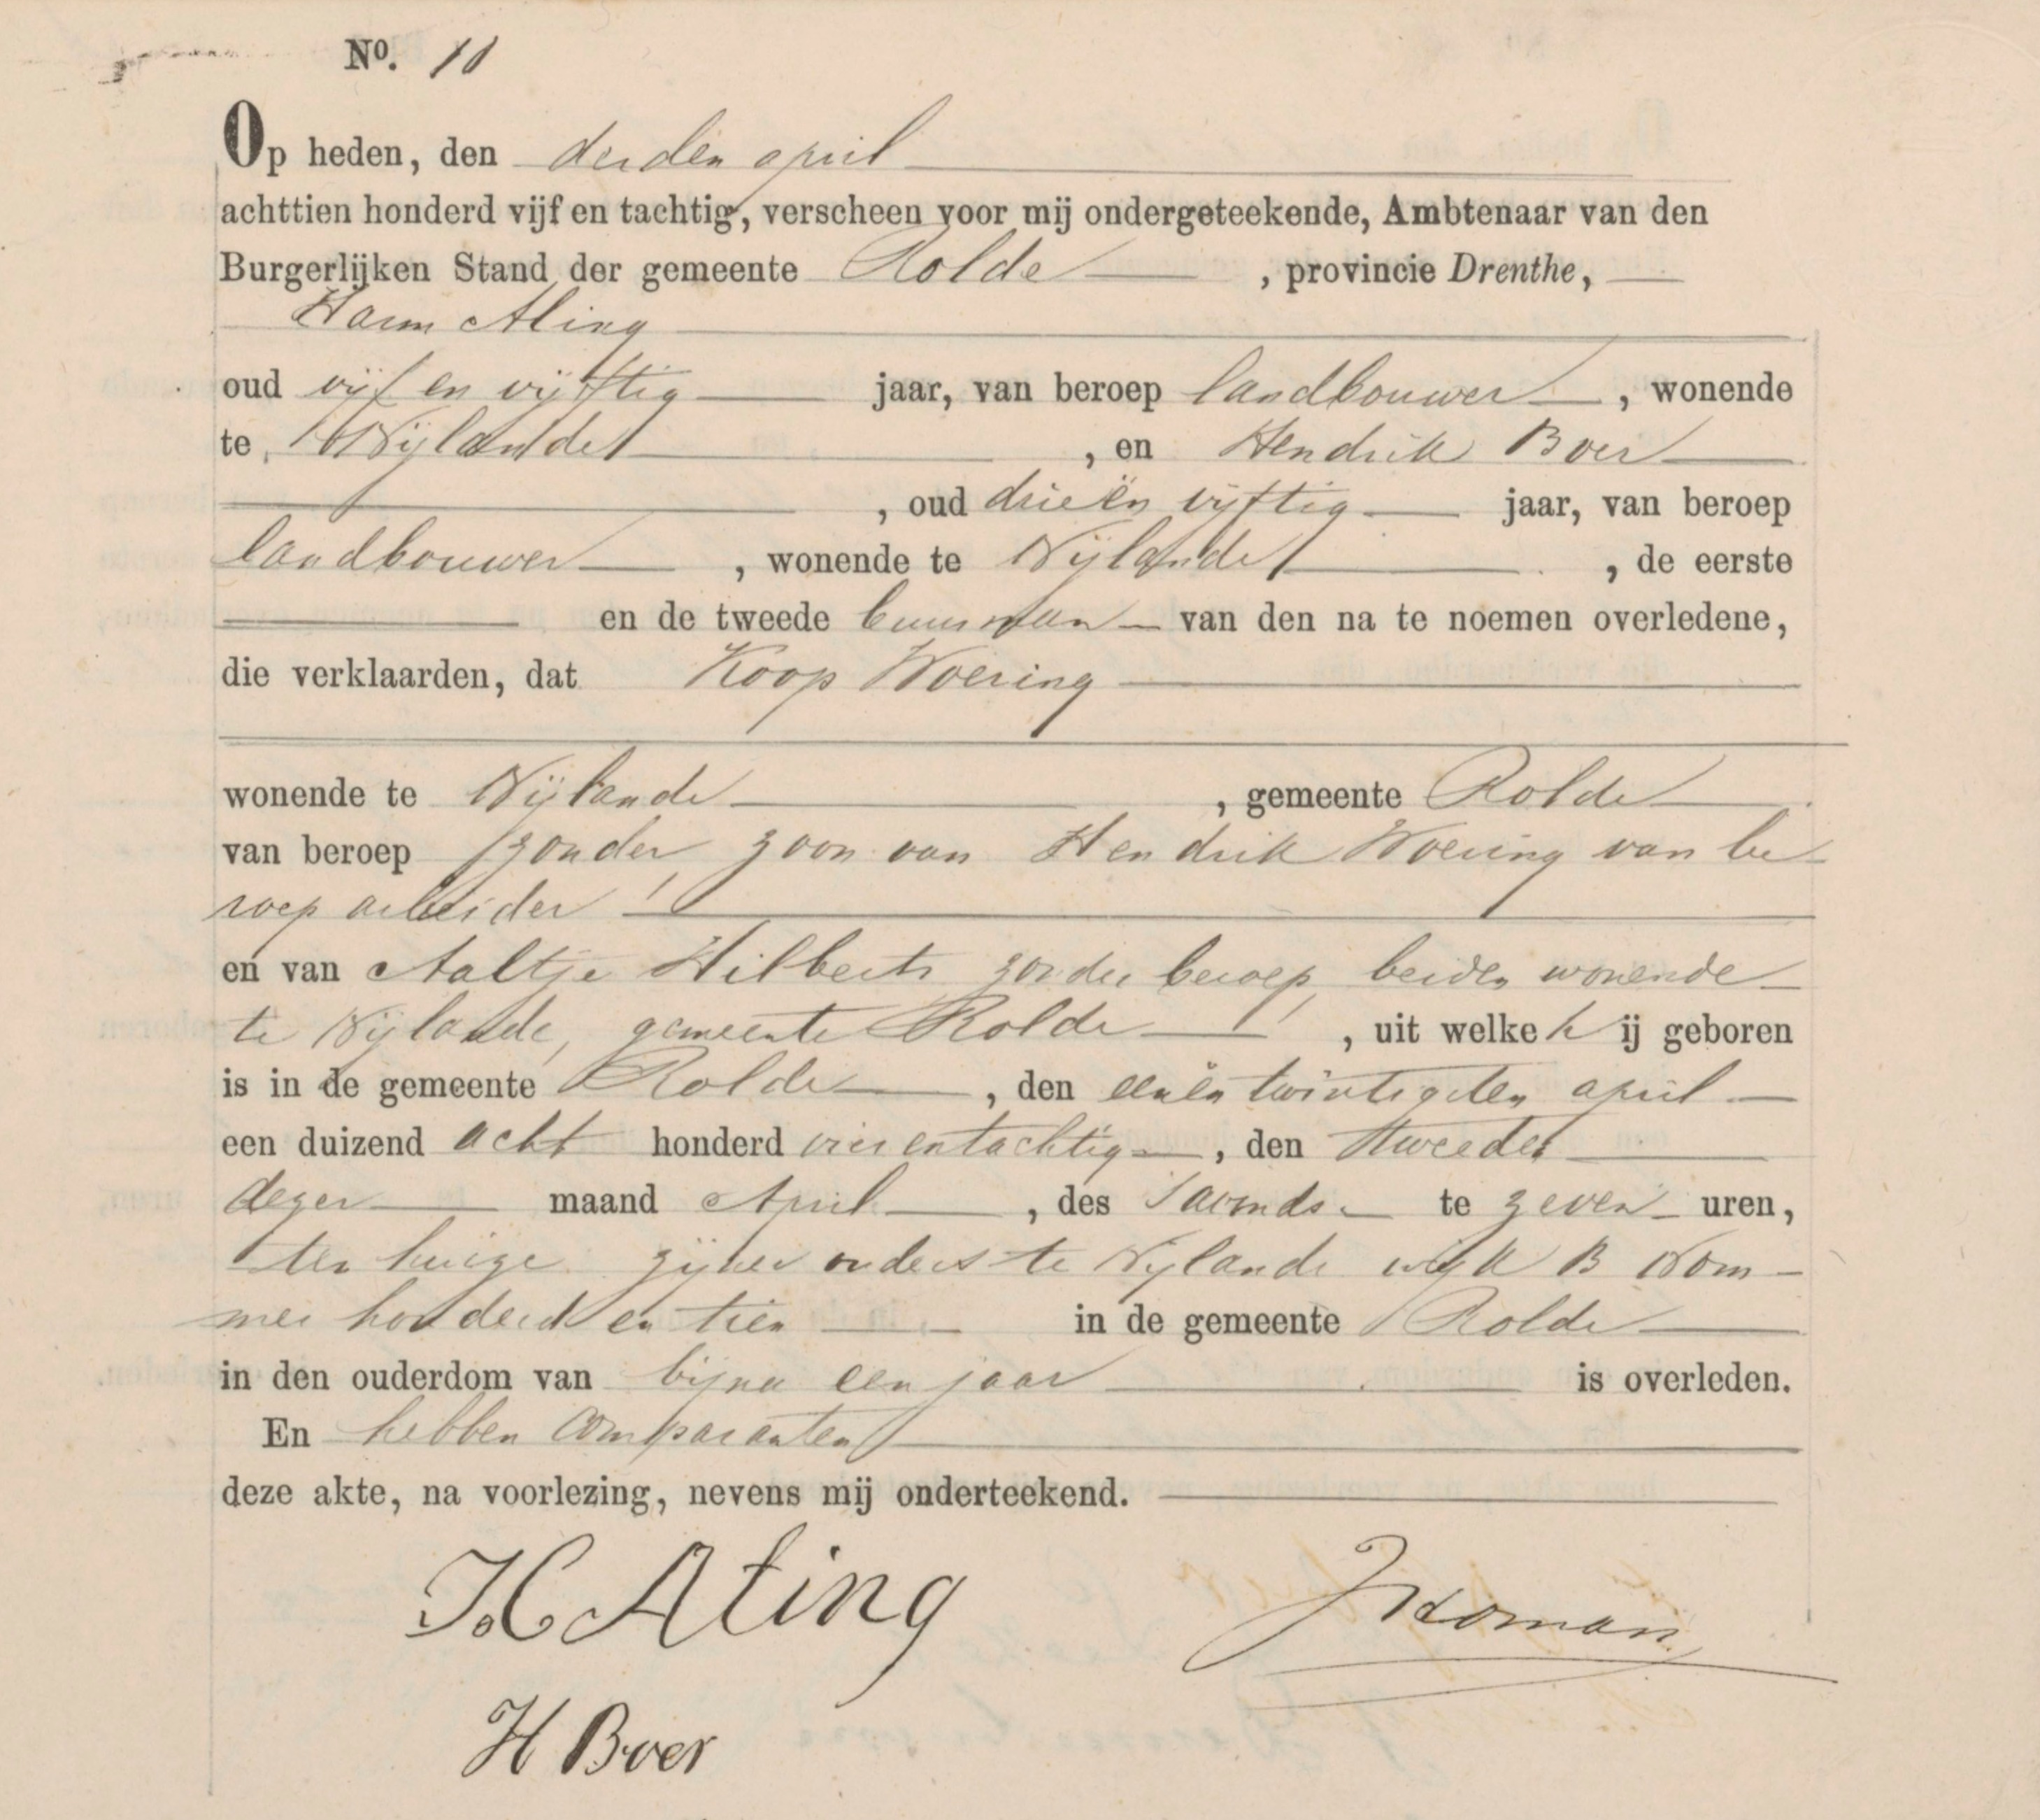 No. 10
Op heden, den derden april
achttien honderd vijf en tachtig, verscheen voor mij ondergeteekende, Ambtenaar van den
Burgerlijken Stand der gemeente Rolde, provincie Drenthe,
Harm Aling
oud vijf en vijftig jaar, van beroep landbouwer, wonende
te Nijlande, en Hendrik Boer
, oud drieën vijftig jaar, van beroep
landbouwer, wonende te Nijlande, de eerste
en de tweede buurman van den na te noemen overledene,
die verklaarden, dat Koop Woering
wonende te Nijlande, gemeente Rolde
van beroep zonder, zoon van Hendrik Woering van be-
roep arbeider
en van Aaltje Hilberts zonder beroep, beiden wonende
te Nijlande, gemeente Rolde, uit welke hij geboren
is in de gemeente Rolde, den eenën twintigsten april
een duizend acht honderd vier en tachtig, den tweeden
dezer maand April, des savonds te zeven uren,
ten huize zijner ouders te Nijlande wijk B Nom-
mer honderd en tien in de gemeente Rolde
in den ouderdom van bijna een jaar is overleden.
En hebben comparanten
deze akte, na voorlezing, nevens mij onderteekend.
H Aling
JHoman
H Boer